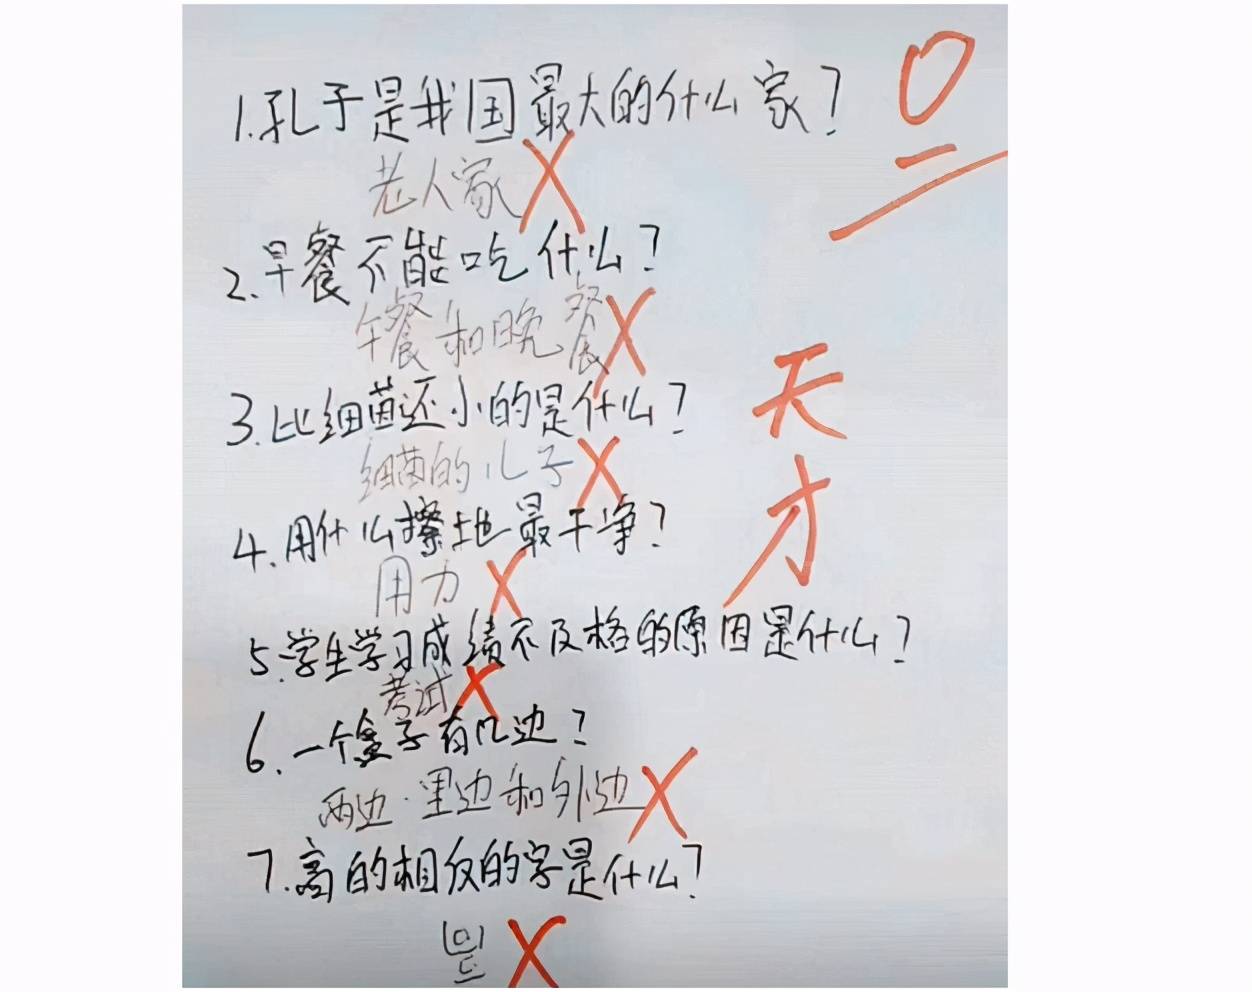 1.孔子是我国最大的什么家?
老人家
0
2.早餐不能吃什么?
午餐和晚餐
3.比细菌还小的是什么?
细菌的儿子
天
才
4.用什么擦地最干净?
用力
5.学生学习成绩不及格的原因是什么?
考试
6.一个盒子有几边?
两边.里边和外边
7.高的相反的字是什么?